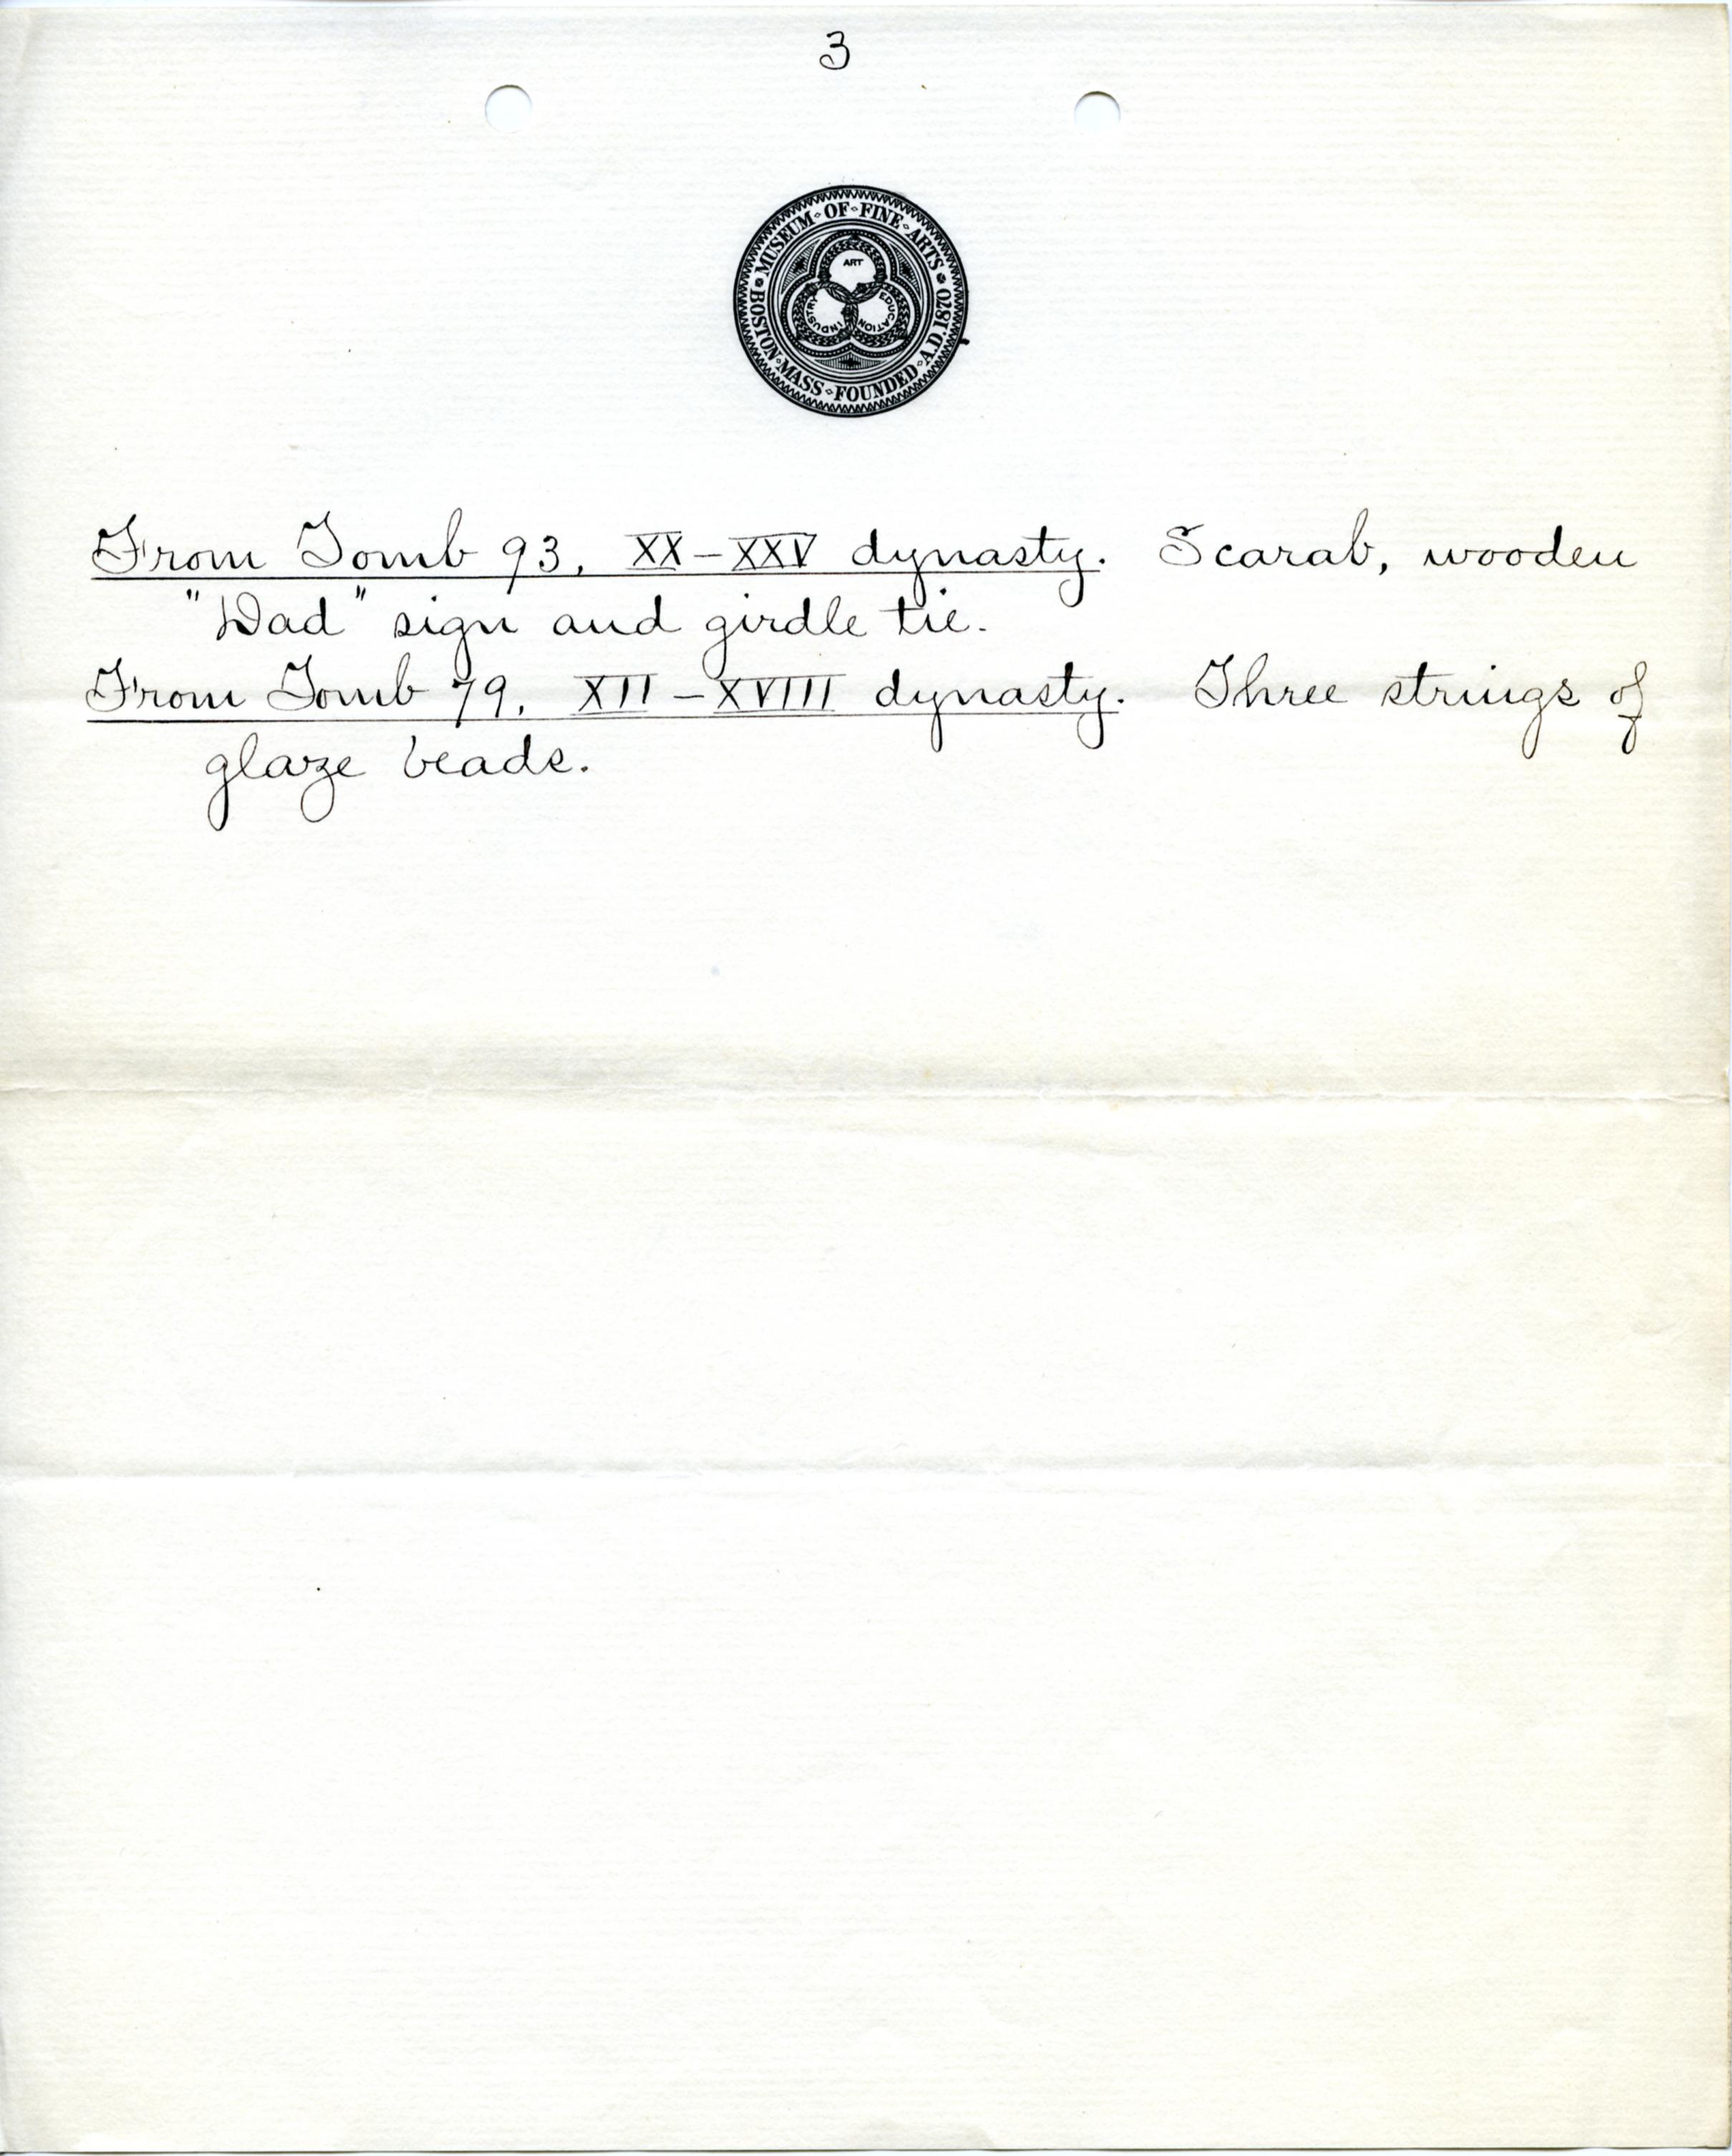 3
MUSEUM OF FINE ARTS
BOSTON MASS FOUNDED A.D. 1870
ART
EDUCATION
INDUSTRY
From Tomb 93, XX–XXV dynasty. Scarab, wooden
"Dad" sign and girdle tie.
From Tomb 79, XII–XVIII dynasty. Three strings of
glaze beads.